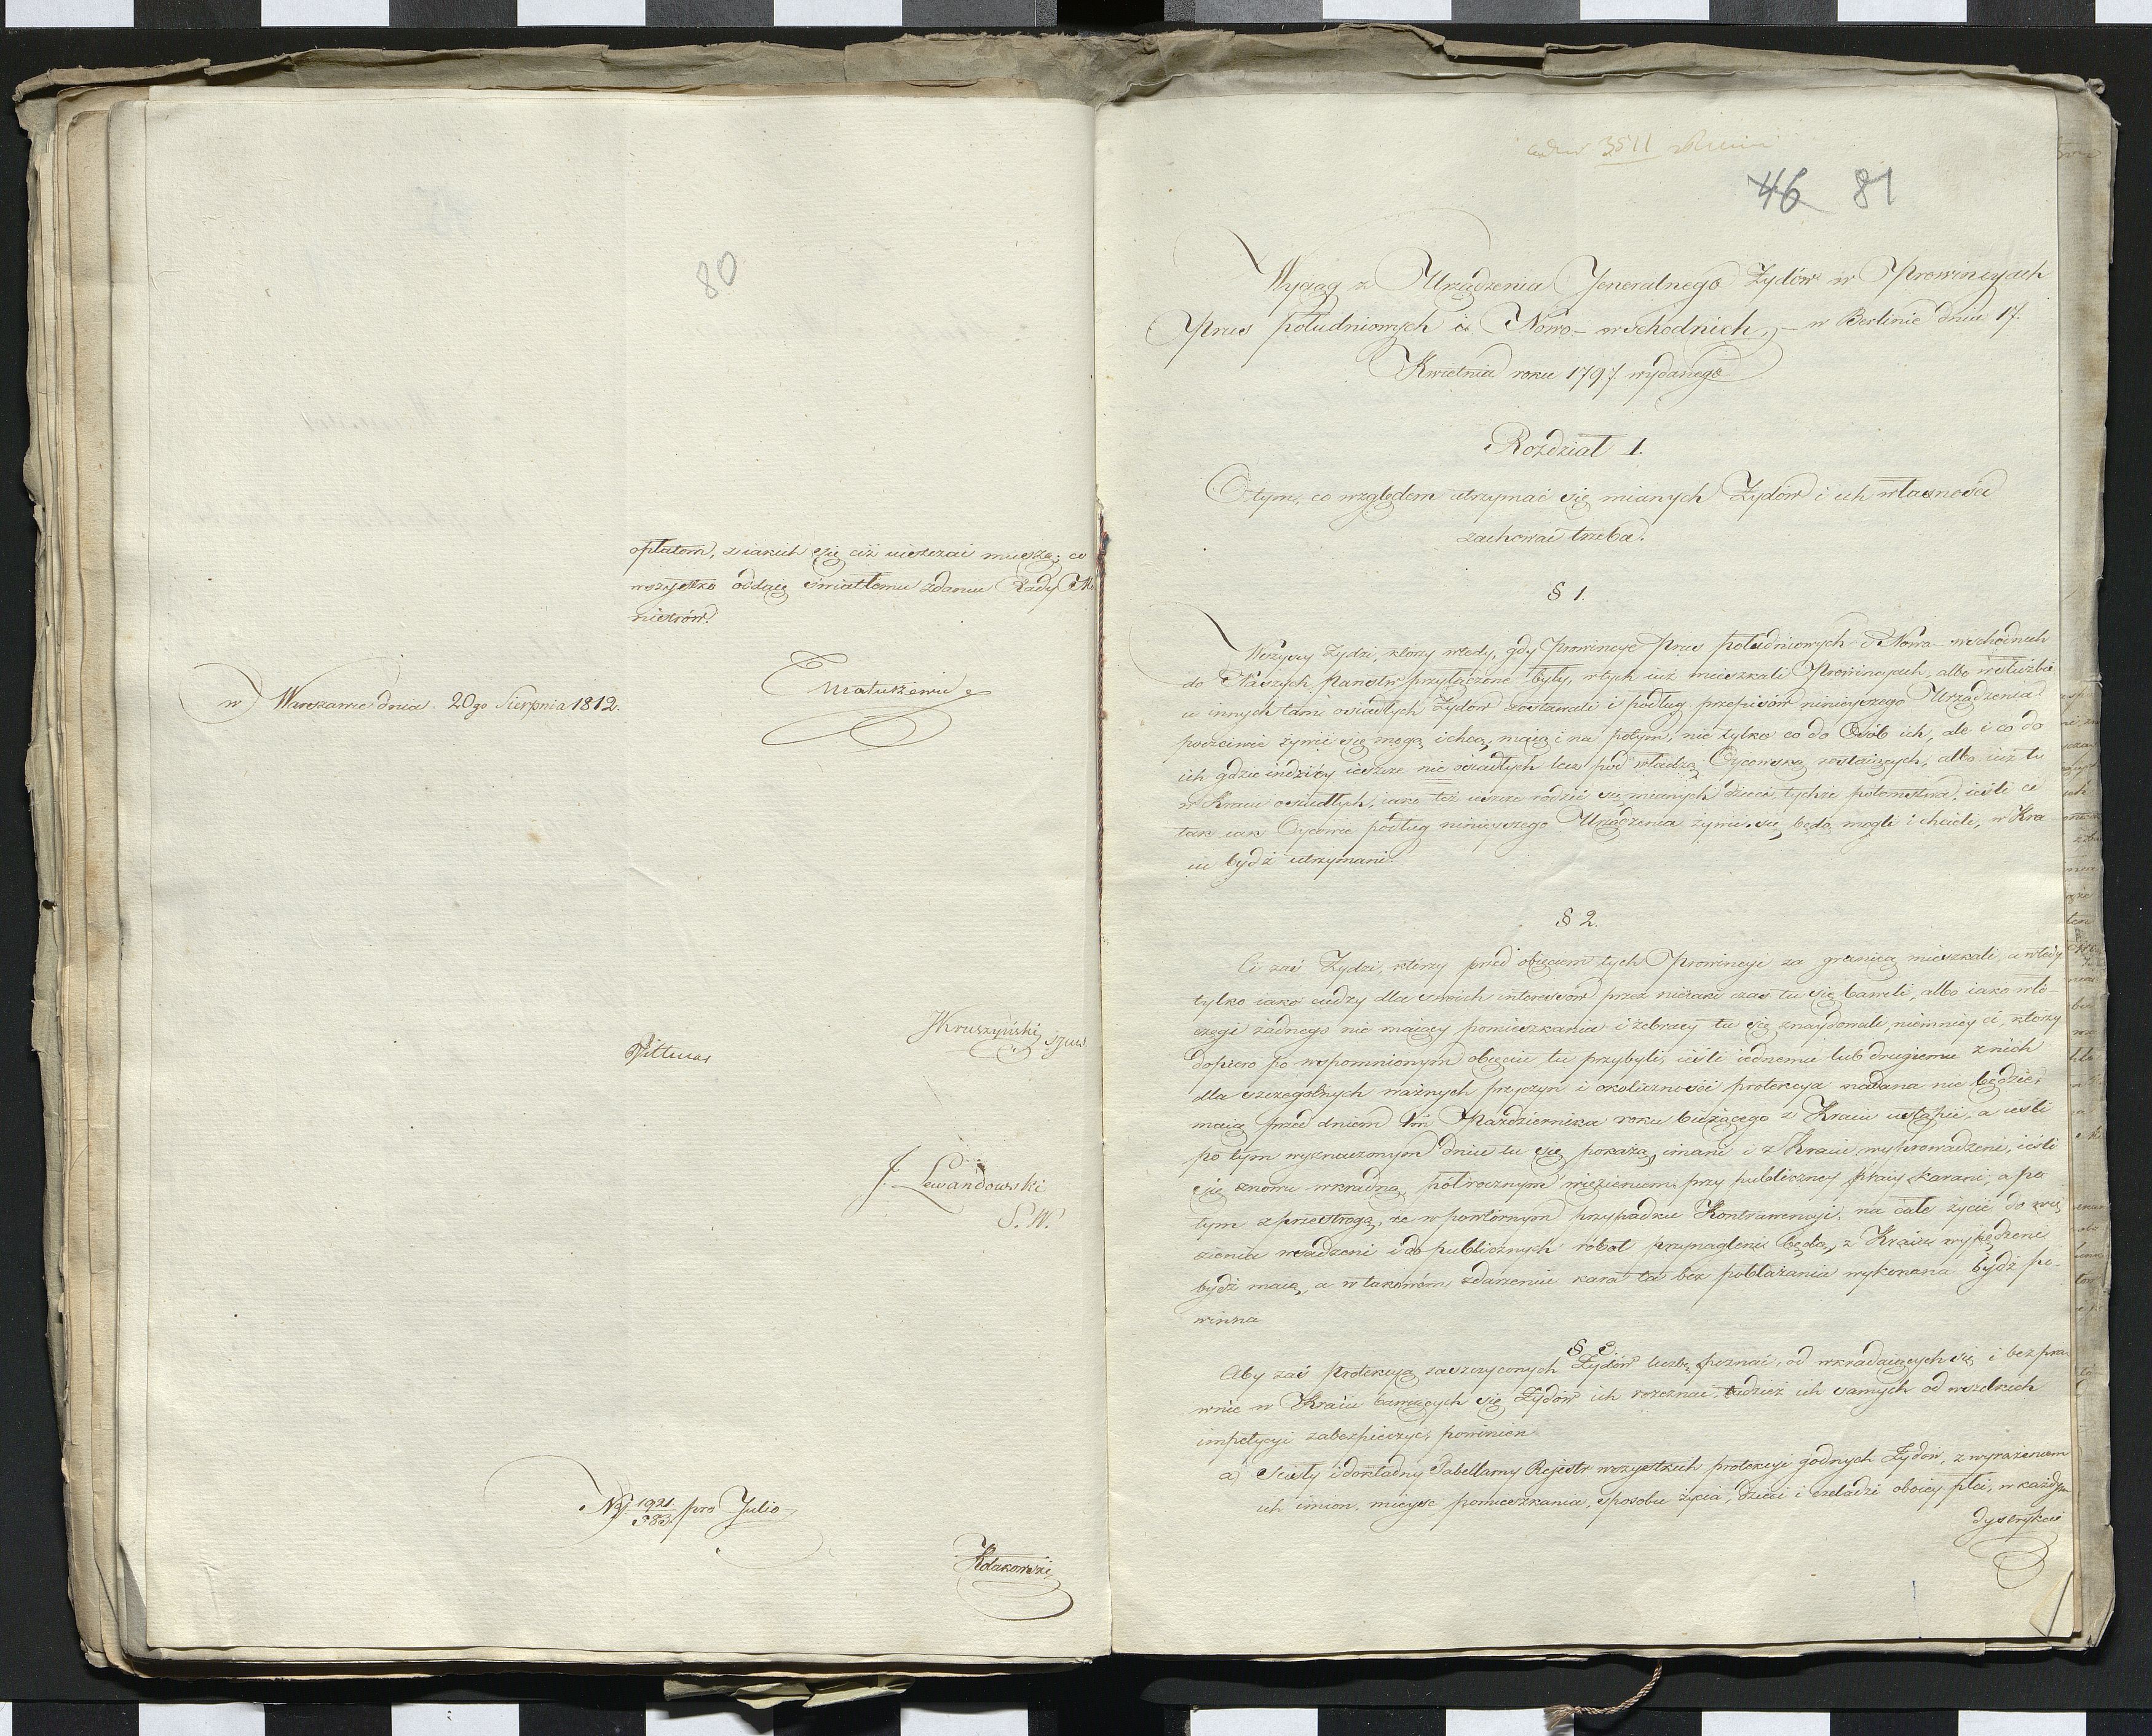 80
opłatom, z iakich się ciż uiszczać muszą; co
wszystko oddaię światłemu zdaniu Rady Mi
nistrów.
w Warszawie dnia 20go Sierpnia 1812.
Matuszewic
JKruszyński
Dittmar
J. Lewandowski
S. W.
N 1921/583 pro Julio
Kołakowski
3511
46 81
Wyciąg z Urządzenia Jeneralnego Żydów w Prowincyach
Prus południowych i Nowo-wschodnich, w Berlinie dnia 17.
Kwietnia roku 1797 wydanego
Rozdział 1.
O tym, co względem utrzymać się mianych Żydów i ich własności
zachować trzeba.
§ 1.
Wszyscy Żydzi, którzy wtedy, gdy Prowincye Prus południowych i Nowo-wschodnich
do Naszych Państw przyłączone były, w tych iuż mieszkali Prowincyach, albo w służbie
u innych tam osiadłych Żydów zostawali i podług przepisów ninieyszego Urządzenia
poczciwie żywić się mogą i chcą, maią i na potym, nie tylko co do Osób ich, ale i co do
ich gdzie indziéy ieszcze nie osiadłych lecz pod władzą Oycowską zostaiących, albo iuż tu
w Kraiu osiadłych, iako też ieszcze rodzić się mianych dzieci, tychże potomstwa, ieśli ci
tak iak Oycowie podług ninieyszego Urządzenia żywić się będą mogli i chcieli, w Kra
iu bydź utrzymani.
§ 2.
Ci zaś Żydzi, którzy przed obięciem tych Prowincyi za granicą mieszkali, a wtedy
tylko iako cudzy dla swoich interessów przez nieiaki czas tu się bawili, albo iako włó-
częgi żadnego nie maiący pomieszkania i żebracy tu się znaydowali niemniey ci, którzy
dopiero po wspomnionym obięciu tu przybyli, ieśli iednemu lub drugiemu z nich
dla szczególnych ważnych przyczyn i okoliczności protekcya nadana nie będzie,
maią przed dniem 1m Października roku bieżącego z Kraiu ustąpić, a ieśli
po tym wyznaczonym dniu tu się pokażą, imani i z Kraiu wyprowadzeni, ieśli
się znowu wkradną, półrocznym więzieniem przy publiczney pracy karani, a po
tym z przestrogą, że w powtórnym przypadku Kontrawencyi, na całe życie do wię
zienia wsadzeni i do publicznych robot przynagleni będą, z Kraiu wypędzeni
bydź maią, a w takowém zdarzeniu kara ta bez pobłażania wykonana bydź po-
winna
§ 3.
Aby zaś Protekcyą zaszczyconych Żydów liczbę poznać, od wkradaiących się i bezpra-
wnie w Kraiu bawiących się Żydów ich rozeznać, tudzież ich samych od wszelkich
impetycyi zabezpieczyć, powinien
a) Ścisły i dokładny Tabellarny Rejestr wszystkich protekcyi godnych Żydów, z wyrażeniem
ich imion, mieysc pomieszkania, sposobu życia, dzieci i czeladzi oboiey płci, w każdym
dystrykcie